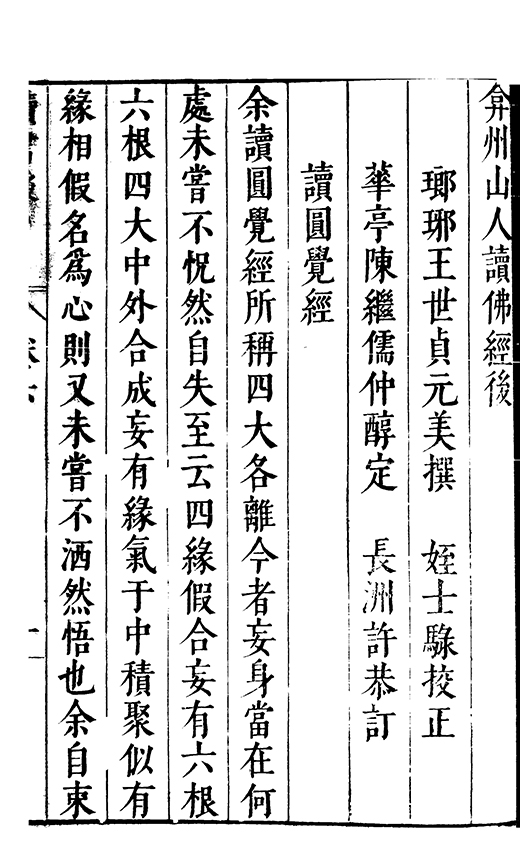 弇州山人讀佛經後
瑯琊王世貞元美撰　姪士騄挍正
華亭陳繼儒仲醇定　長洲許恭訂
讀圓覺經
余讀圓覺經所稱四大各離今者妄身當在何
處未嘗不怳然自失至云四緣假合妄有六根
六根四大中外合成妄有緣氣于中積聚似有
緣相假名爲心則又未嘗不洒然悟也余自束
卷六
一